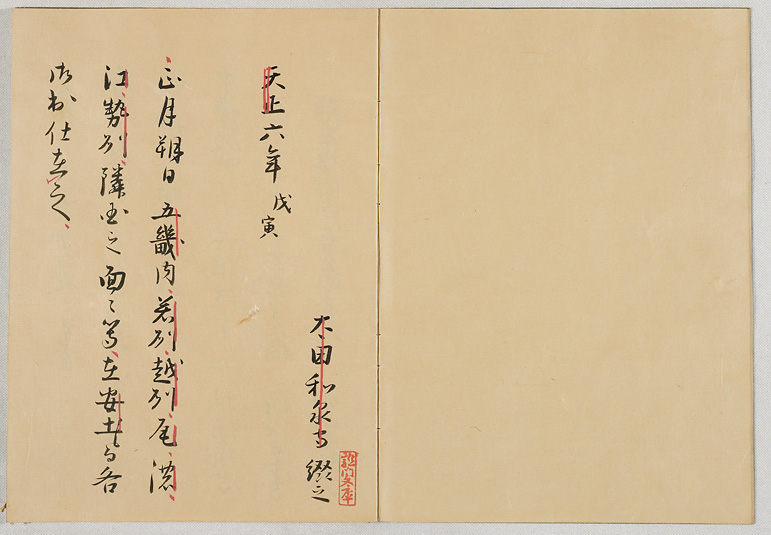 太田和泉守綴之
天正六年 戊寅
正月朔日 五畿内若州越州尾濃
江勢州隣国之面々等在安土候而各
御出仕在之